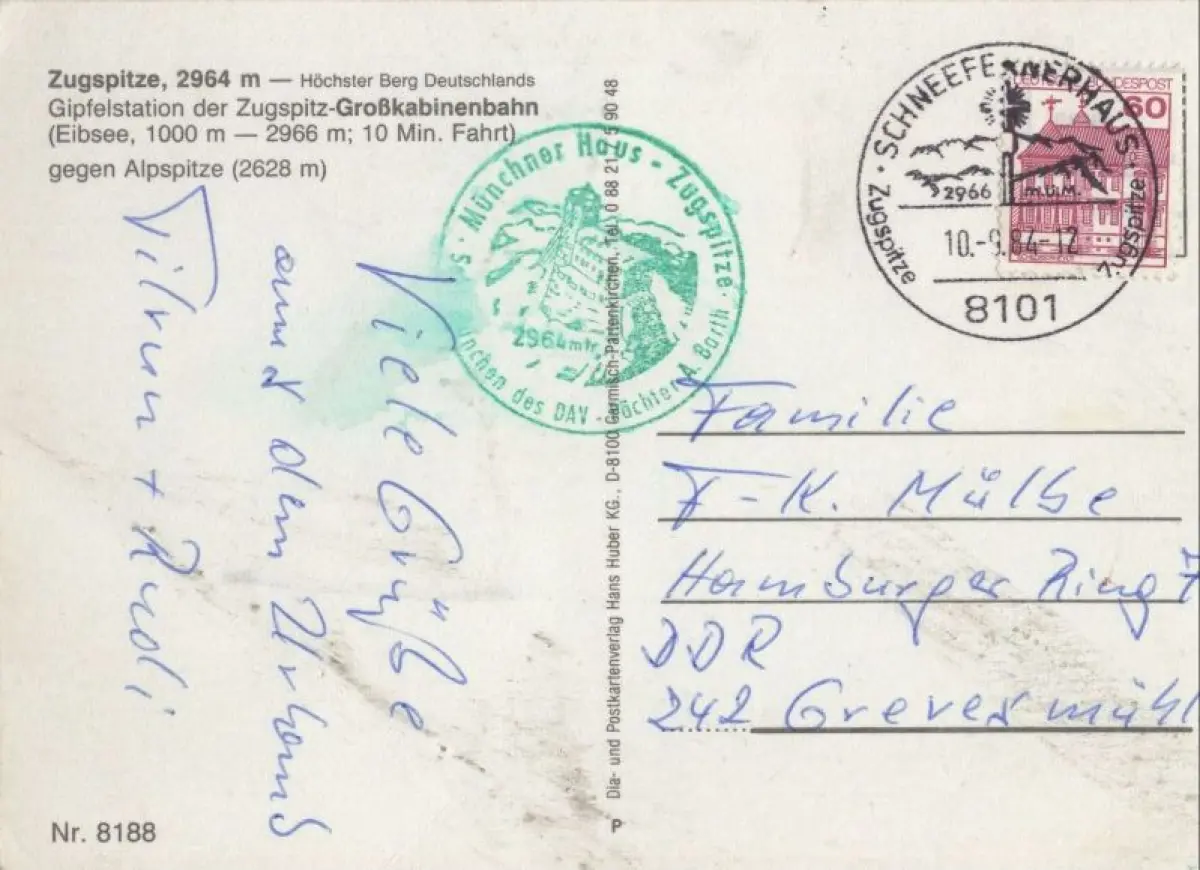 Zugspitze, 2964 m — Höchster Berg Deutschlands
Gipfelstation der Zugspitz-Großkabinenbahn
(Eibsee, 1000 m — 2966 m; 10 Min. Fahrt)
gegen Alpspitze (2628 m)
Viele Grüße
aus dem Urlaub
+ Rudi
Nr. 8188
· Münchner Haus - Zugspitze ·
2964 mtr
nchen des DAV - Pächter A. Barth
Dia- und Postkartenverlag Hans Huber KG., D-8100 Garmisch-Partenkirchen, Tel. 0 88 21 / 5 90 48
P
· SCHNEEFERNERHAUS ·
Zugspitze
Zugspitze
2966 m.ü.M.
10.-9.84-12
8101
BUNDESPOST
60
Familie
F-K. Mülbe
Hamburger Ring 7
DDR
242 Grevesmühl